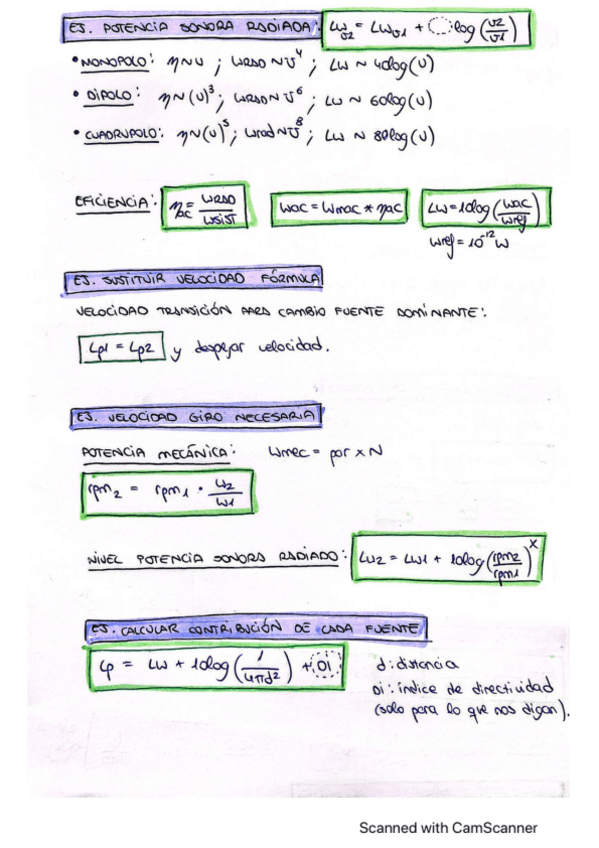 EJ. POTENCIA SONORA RADIADA: Lw_v2 = Lw_v1 + ◌ log (v2/v1)
• MONOPOLO: η∼U ; WRAD∼U⁴ ; Lw ∼ 40log(U)
• DIPOLO: η∼(U)³ ; WRAD∼U⁶ ; Lw ∼ 60log(U)
• CUADRUPOLO: η∼(U)⁵ ; Wrad∼U⁸ ; Lw ∼ 80log(U)
EFICIENCIA: ηac = WRAD/WSIST   Wac = Wmac * ηac   Lw = 10log (Wac/Wref)
Wref = 10⁻¹² W
EJ. SUSTITUIR VELOCIDAD FÓRMULA
VELOCIDAD TRANSICIÓN PARA CAMBIO FUENTE DOMINANTE:
Lp1 = Lp2 y despejar velocidad.
EJ. VELOCIDAD GIRO NECESARIA
POTENCIA MECÁNICA: Wmec = par x N
rpm₂ = rpm₁ · W2/W1
NIVEL POTENCIA SONORA RADIADO: Lw2 = Lw1 + 10log (rpm2/rpm1)ˣ
EJ. CALCULAR CONTRIBUCIÓN DE CADA FUENTE
Lp = Lw + 10log (1/4πd²) + DI   d: distancia
DI: índice de directividad
(solo para lo que nos digan).
Scanned with CamScanner